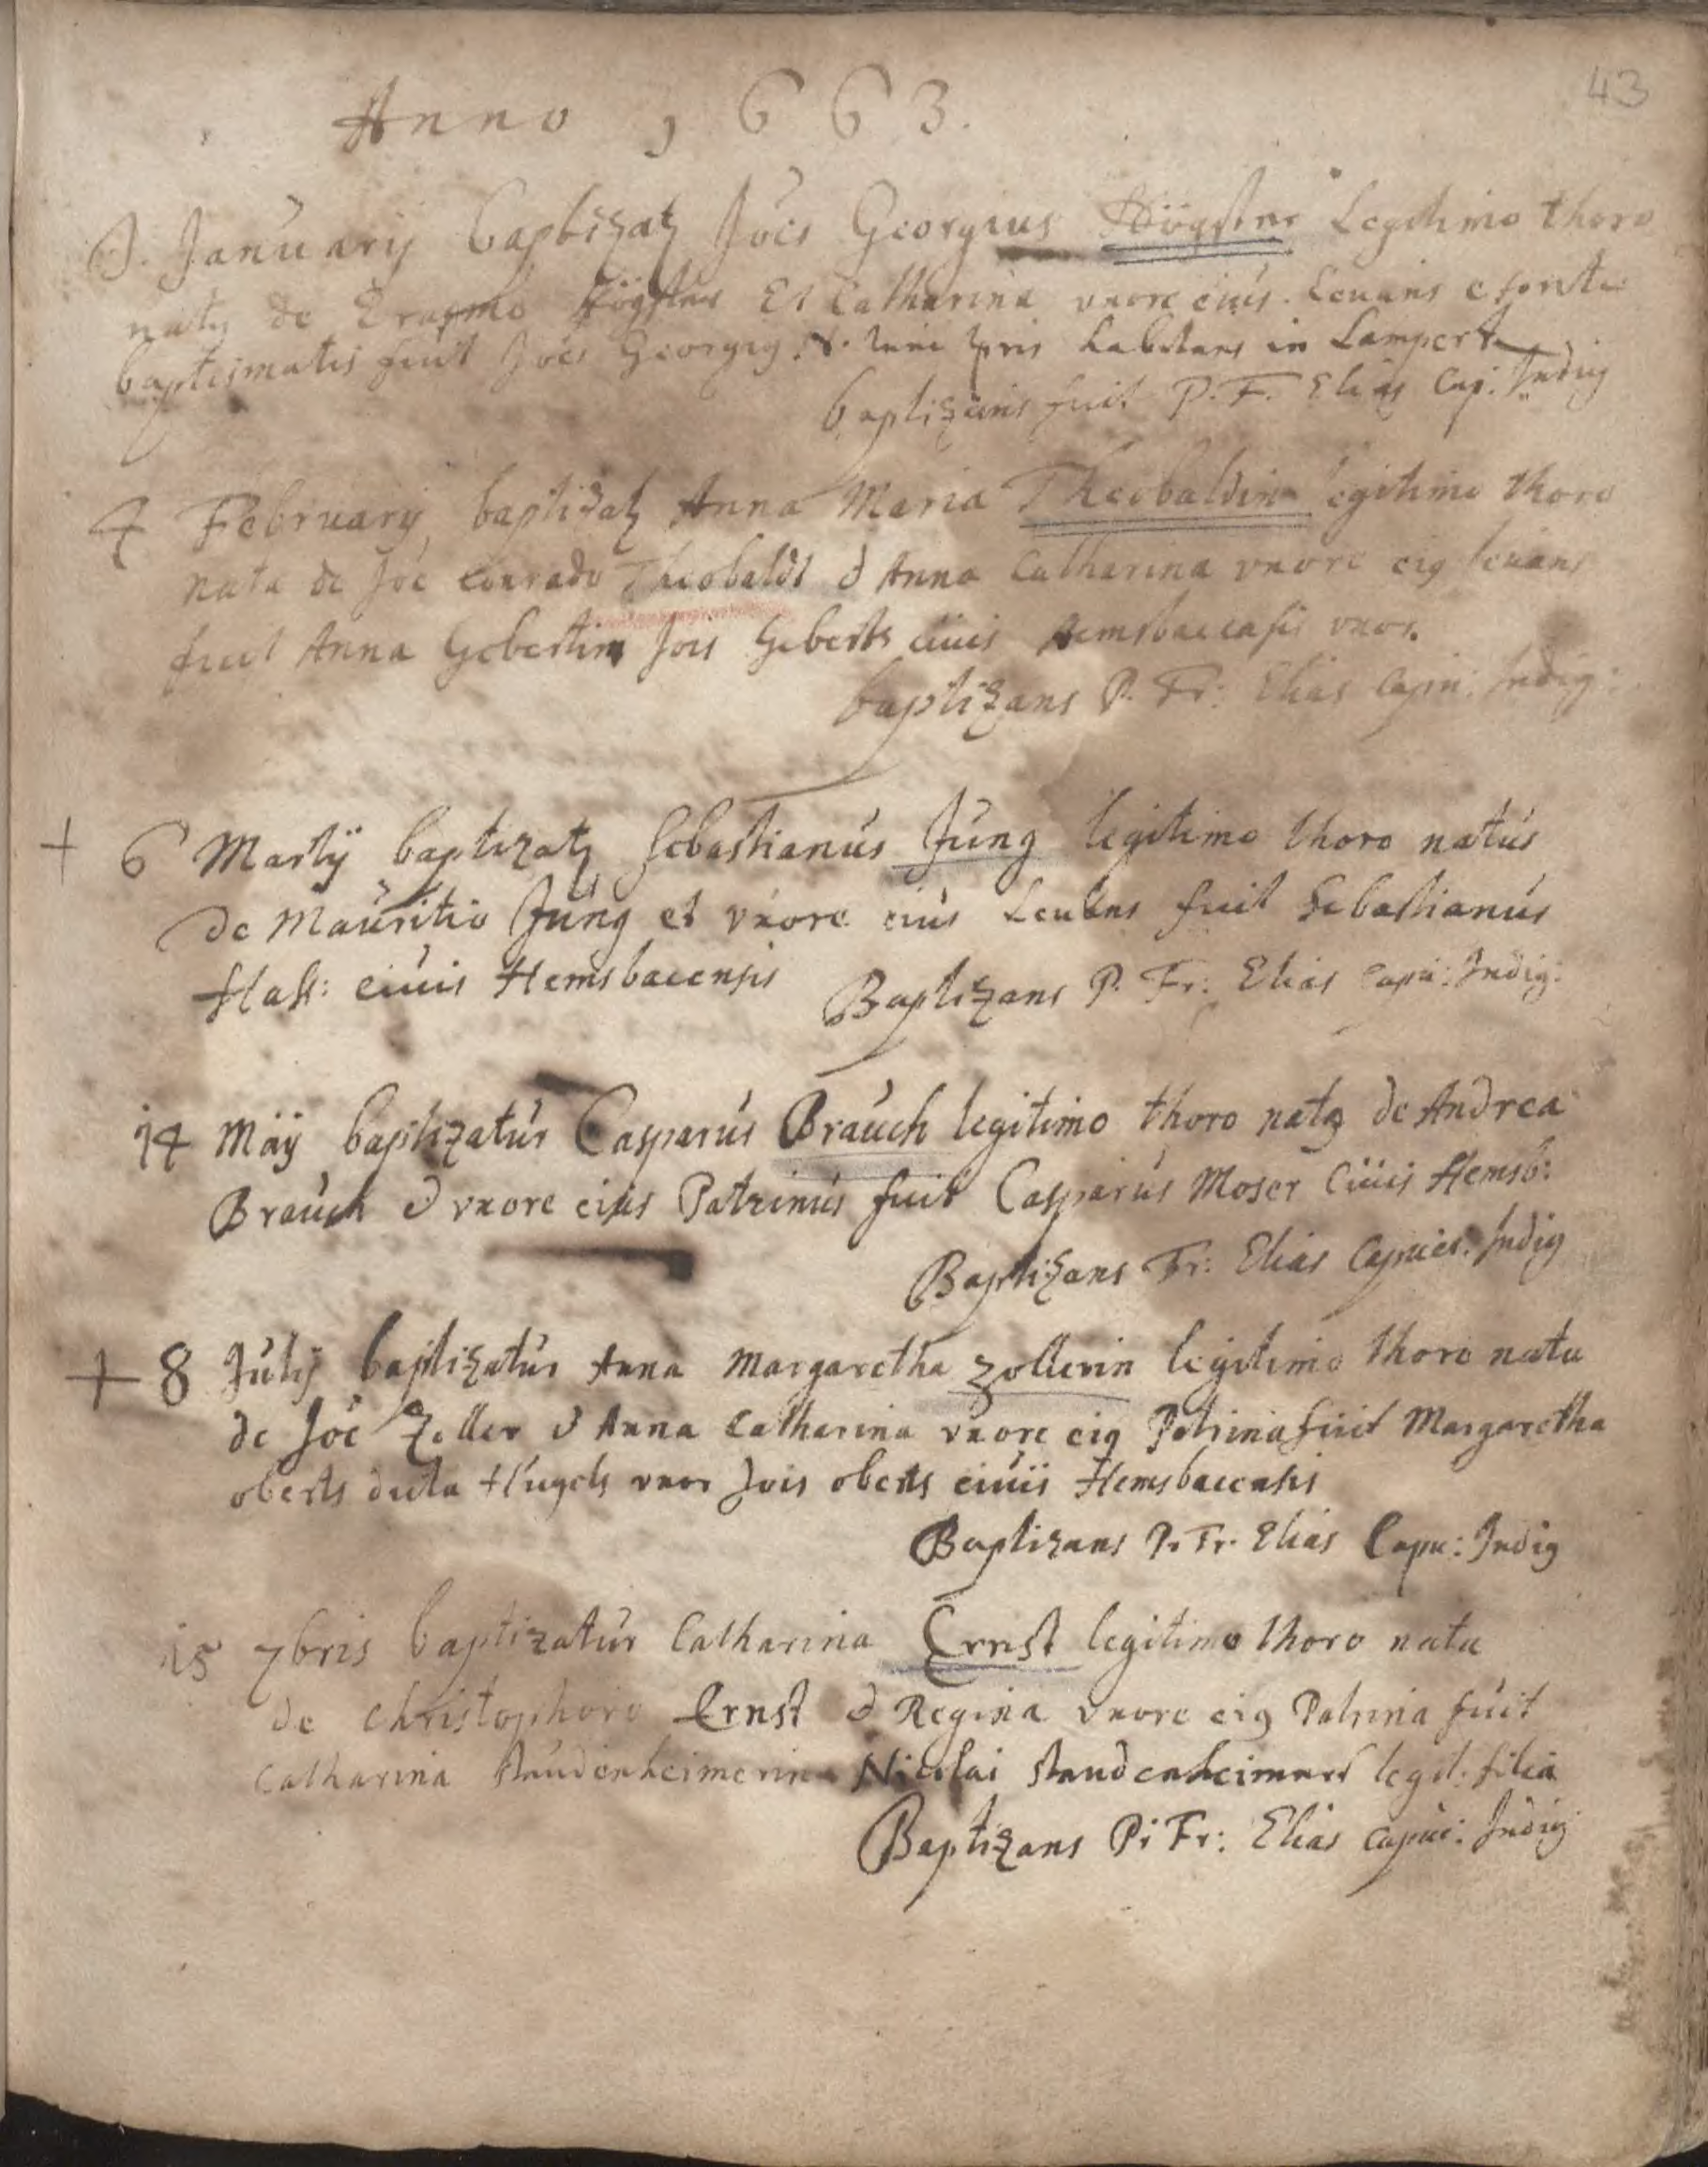 43
Anno 1663.
Januarij baptizatq Joes Georgius Högster Legitimo thoro
natq de Erasmo Högster Et Catharina vxore eius. Leuans e fonte
baptismatis fuit Joes Georgiq habitans in Lampert
baptizans fuit P. F. Elias Cap: Indig
4 February baptizatq Anna Maria Theobaldin legitimo thoro
nata de Joe Conrado Theobaldt & Anna Catharina vxore eiq leuans
fuit Anna Gebertin Jois Geberts ciuis Hemsbaecensis vxor.
baptizans P. Fr: Elias Capu: Indig:
+ 6 Martij baptizatq Sebastianus Jung legitimo thoro natus
de Mauritio Jung et vxore eius Leuans fuit Sebastianus
Hass: ciuis Hemsbaecensis Baptizans P. Fr: Elias Capu: Indig:
14 Maij baptizatus Casparus Brauch legitimo thoro natq de Andrea
Brauch & vxore eius Patrinus fuit Casparus Moser Ciuis Hemsb:
Baptizans Fr: Elias Capuci: Indig
+ 8 Julij baptizatur Anna Margaretha Zollerin legitimo thoro nata
de Joe Zoller & Anna Catharina vxore eiq Patrina fuit Margaretha
oberts dicta Hugels vxor Jois oberts ciuis Hemsbaecensis
Baptizans P. Fr. Elias Capu: Indig
15 7bris baptizatur Catharina Ernst legitimo thoro nata
de Christophoro Ernst & Regina vxore eiq Patrina fuit
Catharina Staudenheimerin Nicolai Staudenheimers legit: filia
Baptizans P: Fr: Elias Capuc: Indig